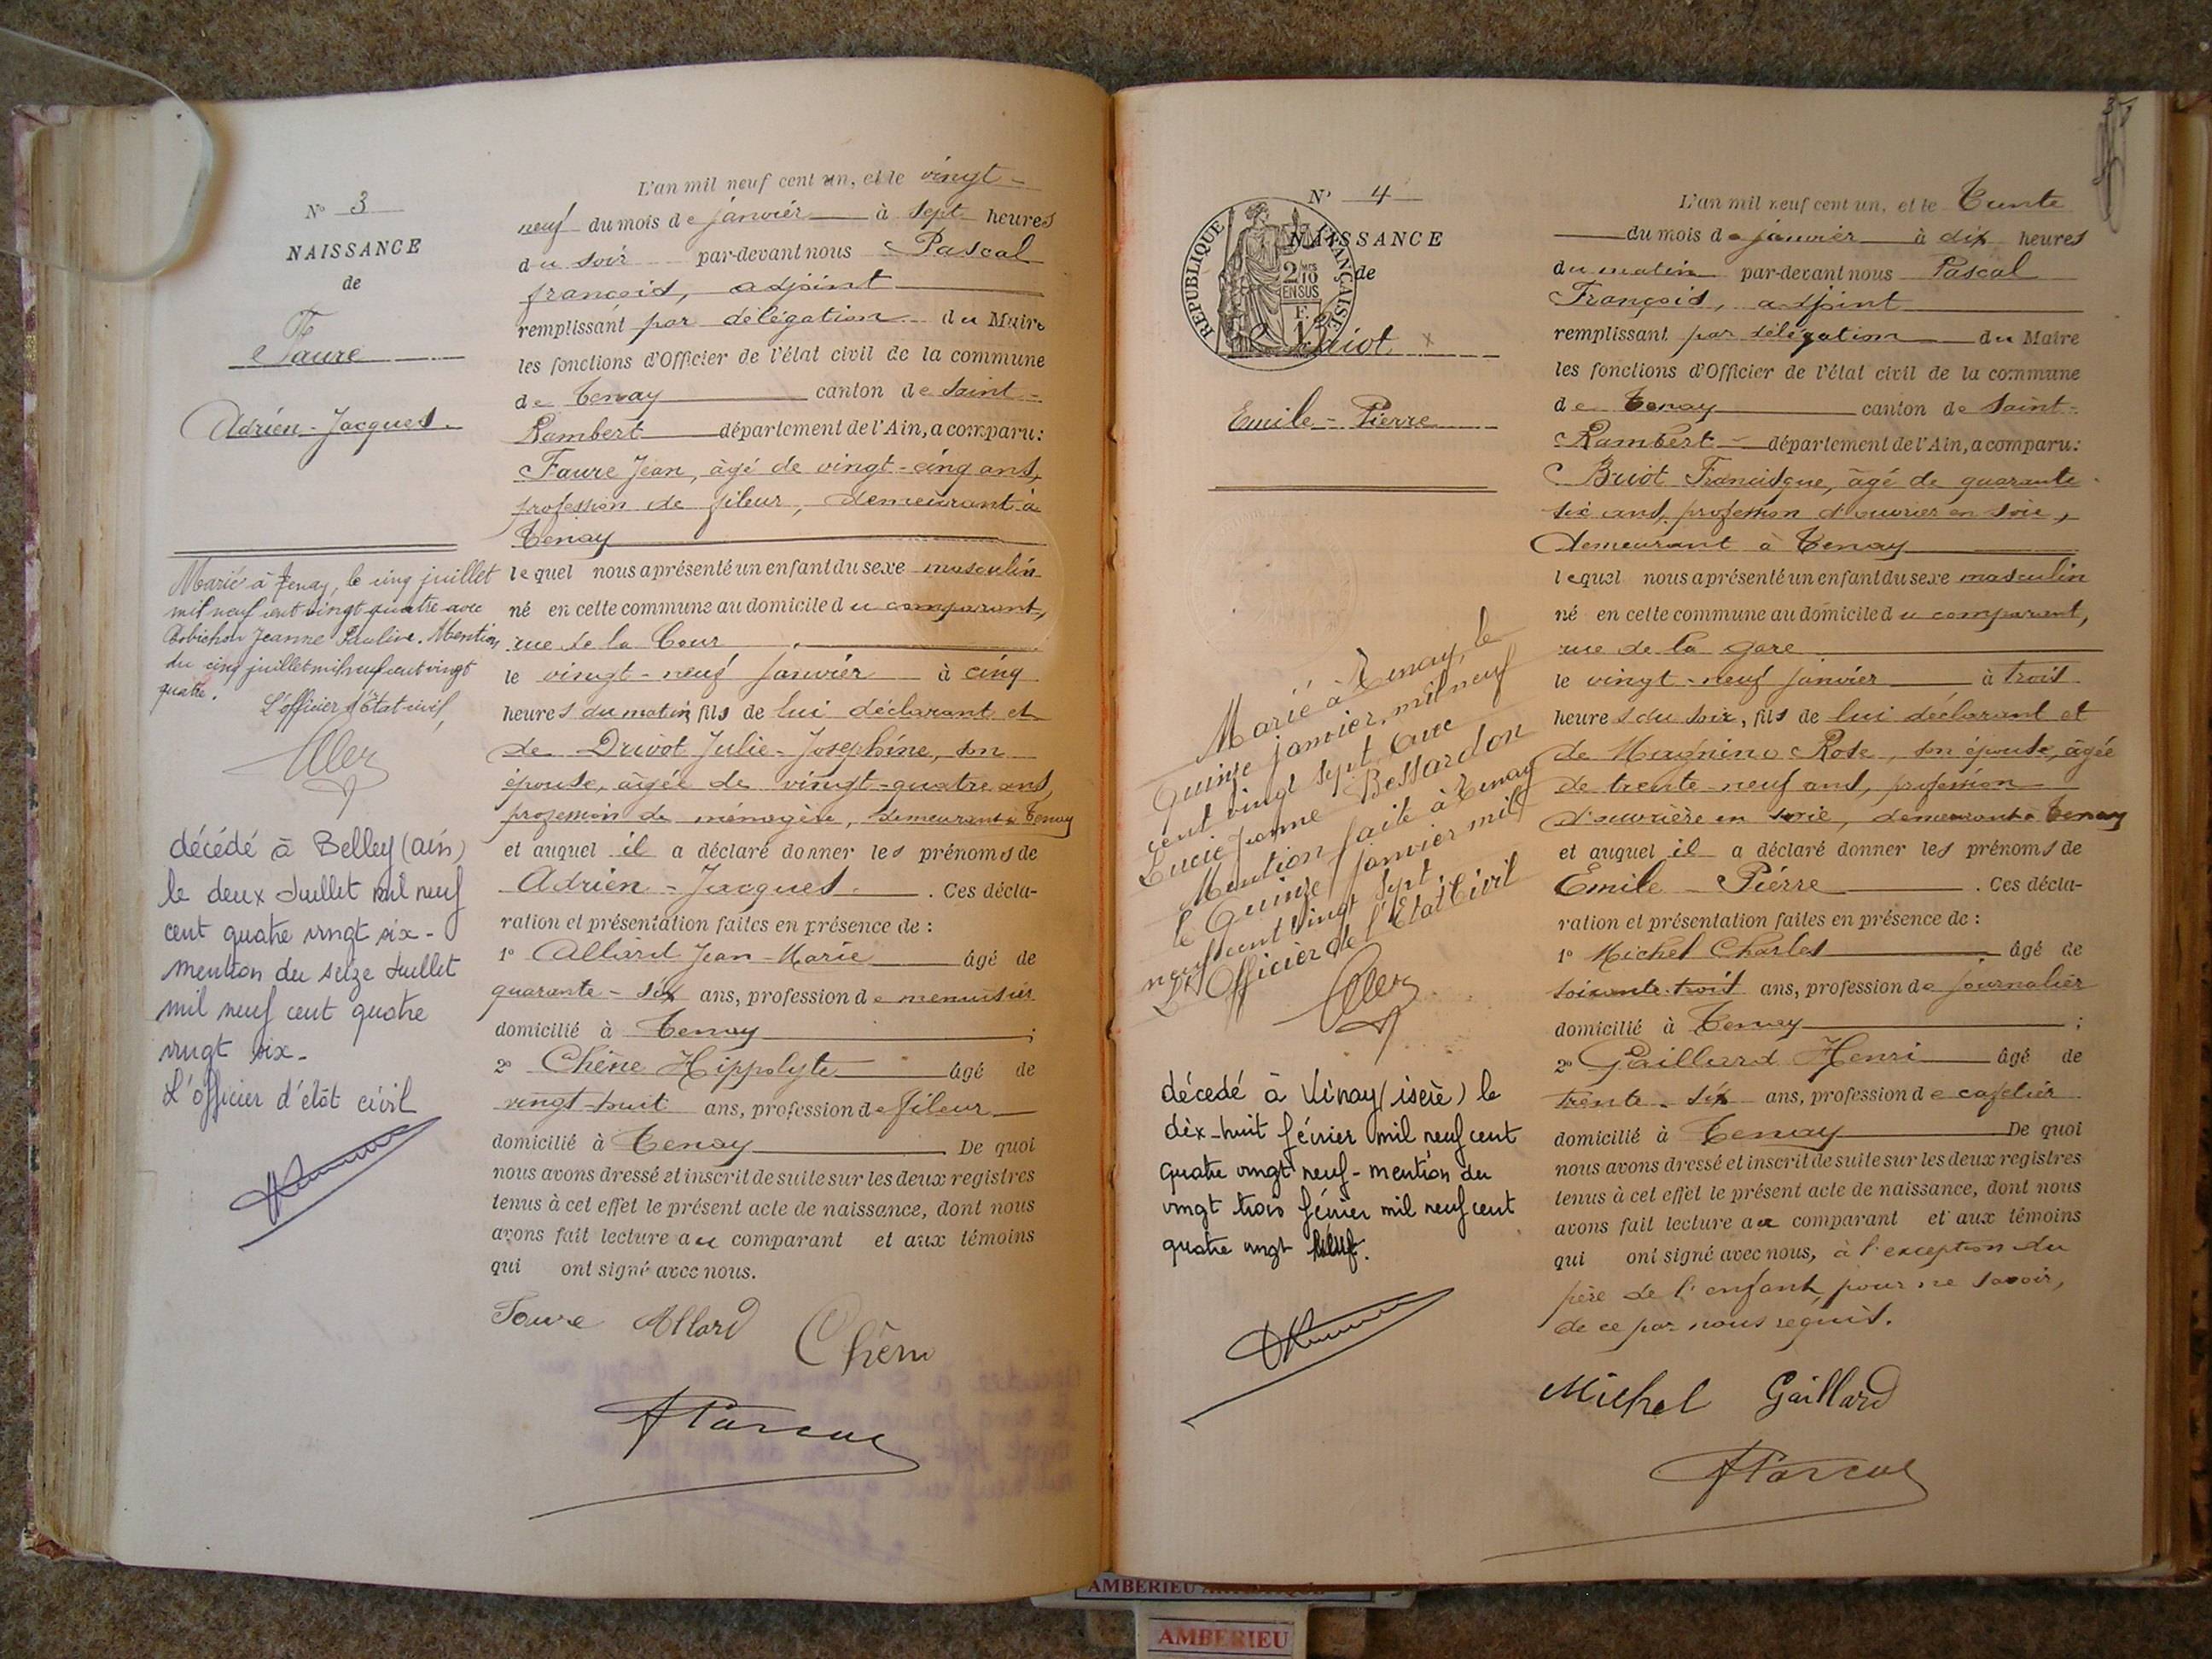 N° 3
NAISSANCE
de
Faure
Adrien-Jacques.
Marié à Tenay, le cinq juillet
mil neuf cent vingt quatre avec
Jeanne Pauline. Mention
du cinq juillet mil neuf cent vingt
quatre.
L'officier d'Etat-civil,
décédé à Belley (ain)
le deux Juillet mil neuf
cent quatre vingt six -
mention du seize Juillet
mil neuf cent quatre
vingt six -
L'officier d'état civil
L'an mil neuf cent un, et le vingt-
neuf du mois de janvier à sept heures
du soir par-devant nous Pascal
françois, adjoint
remplissant par délégation du Maire
les fonctions d'Officier de l'état civil de la commune
de Tenay canton de Saint-
Rambert département de l'Ain, a comparu:
Faure Jean, âgé de vingt-cinq ans,
profession de fileur, demeurant à
Tenay
lequel nous a présenté un enfant du sexe masculin
né en cette commune au domicile du comparant,
rue de la Cour
le vingt-neuf janvier à cinq
heures du matin, fils de lui déclarant et
de Drivot Julie-Joséphine, son
épouse, âgée de vingt-quatre ans,
profession de ménagère, demeurant à Tenay
et auquel il a déclaré donner les prénoms de
Adrien-Jacques. Ces décla-
ration et présentation faites en présence de :
1° Allard Jean-Marie âgé de
quarante-six ans, profession de menuisier
domicilié à Tenay ;
2° Chêne Hippolyte âgé de
vingt-huit ans, profession de fileur
domicilié à Tenay De quoi
nous avons dressé et inscrit de suite sur les deux registres
tenus à cet effet le présent acte de naissance, dont nous
avons fait lecture au comparant et aux témoins
qui ont signé avec nous.
Faure Allard Chêne
FPascal
N° 4
NAISSANCE
de
REPUBLIQUE FRANÇAISE
2/10
EN SUS
Briot
Emile-Pierre
Marié à Tenay, le
Quinze janvier, mil neuf
cent vingt sept, avec
Lucie Jeanne Bessardon
Mention faite à Tenay
le Quinze janvier mil
neuf cent vingt sept.
L'Officier de l'Etat Civil
décedé à Vinay (isère) le
dix-huit février mil neuf cent
quatre vingt neuf - mention du
vingt trois février mil neuf cent
quatre vingt neuf.
L'an mil neuf cent un, et le Trente
du mois de janvier à dix heures
du matin par-devant nous Pascal
François, adjoint
remplissant par délégation du Maire
les fonctions d'Officier de l'état civil de la commune
de Tenay canton de Saint-
Rambert département de l'Ain, a comparu:
Briot Francisque, âgé de quarante-
six ans, profession d'ouvrier en soie,
demeurant à Tenay
lequel nous a présenté un enfant du sexe masculin
né en cette commune au domicile du comparant,
rue de la gare
le vingt-neuf janvier à trois
heures du soir, fils de lui déclarant et
de Magnino Rose, son épouse, âgée
de trente-neuf ans, profession
d'ouvrière en soie, demeurant à Tenay
et auquel il a déclaré donner les prénoms de
Emile-Pierre. Ces décla-
ration et présentation faites en présence de :
1° Michel Charles âgé de
soixante-trois ans, profession de journalier
domicilié à Tenay ;
2° Gaillard Henri âgé de
trente-six ans, profession de cafetier
domicilié à Tenay De quoi
nous avons dressé et inscrit de suite sur les deux registres
tenus à cet effet le présent acte de naissance, dont nous
avons fait lecture au comparant et aux témoins
qui ont signé avec nous, à l'exception du
père de l'enfant pour ne savoir,
de ce par nous requis.
Michel Gaillard
FPascal
AMBERIEU
AMBERIEU